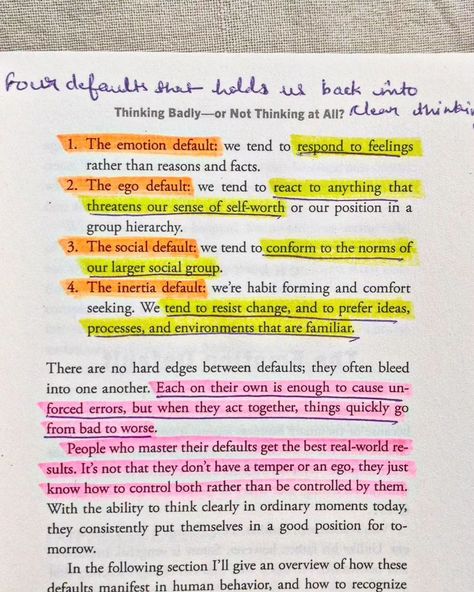 Four defaults that holds us back into
clear thinking
Thinking Badly—or Not Thinking at All?
1. The emotion default: we tend to respond to feelings
rather than reasons and facts.
2. The ego default: we tend to react to anything that
threatens our sense of self-worth or our position in a
group hierarchy.
3. The social default: we tend to conform to the norms of
our larger social group.
4. The inertia default: we're habit forming and comfort
seeking. We tend to resist change, and to prefer ideas,
processes, and environments that are familiar.
There are no hard edges between defaults; they often bleed
into one another. Each on their own is enough to cause un-
forced errors, but when they act together, things quickly go
from bad to worse.
People who master their defaults get the best real-world re-
sults. It's not that they don't have a temper or an ego, they just
know how to control both rather than be controlled by them.
With the ability to think clearly in ordinary moments today,
they consistently put themselves in a good position for to-
morrow.
In the following section I'll give an overview of how these
defaults manifest in human behavior, and how to recognize